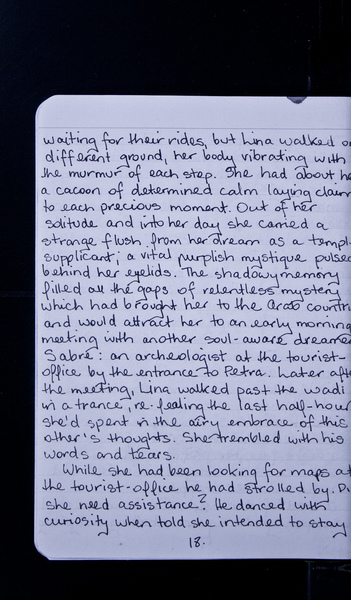 waiting for their rides, but Lina walked on
different ground, her body vibrating with
the murmur of each step. She had about he
a cacoon of determined calm laying claim
to each precious moment. Out of her
solitude and into her day she carried a
strange flush from her dream as a templ
supplicant; a vital purplish mystique pulsed
behind her eyelids. The shadowy memory
filled all the gaps of relentless mystery
which had brought her to the Arab countri
and would attract her to an early morning
meeting with another soul-aware dreamer
Sabre: an archeologist at the tourist-
office by the entrance to Petra. Later afte
the meeting, Lina walked past the wadi
in a trance, re-feeling the last half-hour
she'd spent in the airy embrace of this
other's thoughts. She trembled with his
words and tears.
While she had been looking for maps at
the tourist-office he had strolled by. Di
she need assistance? He danced with
curiosity when told she intended to stay
18.